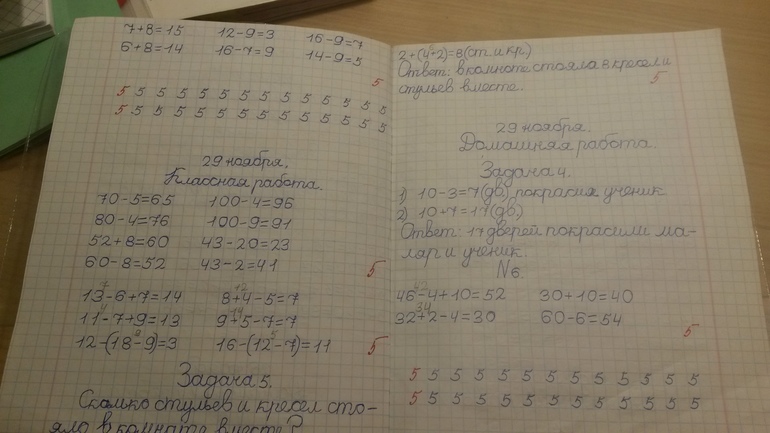 7+8=15 12-9=3 16-9=7
6+8=14 16-7=9 14-9=5
5
5 5 5 5 5 5 5 5 5 5 5 5 5
5 5 5 5 5 5 5 5 5 5 5 5 5
29 ноября.
Классная работа.
70-5=65 100-4=96
80-4=76 100-9=91
52+8=60 43-20=23
60-8=52 43-2=41
5
7 12
13-6+7=14 8+4-5=7
4 14
11-7+9=13 9+5-7=7
9 5
12-(18-9)=3 16-(12-7)=11
5
Задача 5.
Сколько стульев и кресел сто-
яло в комнате вместе?
2+(4+2)=8(ст. и кр.)
Ответ: в комнате стояла 8 кресел и
стульев вместе.
5
29 ноября.
Домашняя работа.
Задача 4.
1) 10-3=7(дв.) покрасил ученик
2) 10+7=17(дв.)
Ответ: 17 дверей покрасили ма-
ляр и ученик.
№6.
42
46-4+10=52 30+10=40
34
32+2-4=30 60-6=54
5
5 5 5 5 5 5 5 5 5 5 5 5 5
5 5 5 5 5 5 5 5 5 5 5 5 5